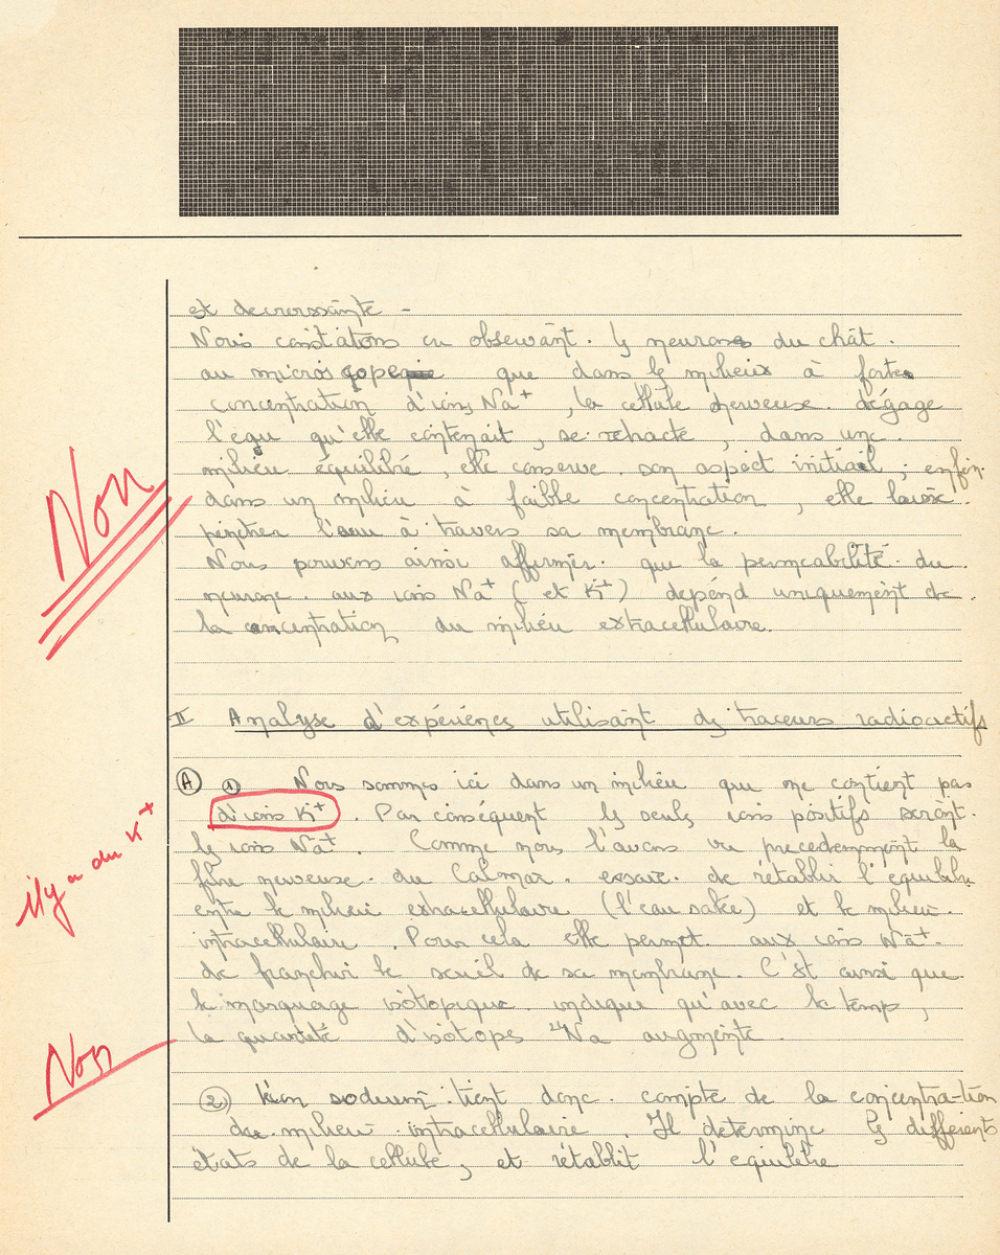 est decroissante -
Nous constatons en observant les neurones du chât
au microscope que dans les milieux à forte
concentration d'ions Na+, la cellule nerveuse dégage
l'eau qu'elle contenait, se retracte, dans une
milieu équilibré, elle conserve son aspect initial ; enfin
dans un milieu à faible concentration, elle laisse
pénétrer l'eau à travers sa membrane.
Nous pouvons ainsi affirmer que la permeabilité du
neurone aux ions Na+ (et K+) dépend uniquement de
la concentration du milieu extracellulaire.
II Analyse d'expériences utilisant des traceurs radioactifs
A 1 Nous sommes ici dans un milieu que ne contient pas
d'ions K+. Par conséquent les seuls ions positifs seront
il y a du K+
les ions Na+. Comme nous l'avons vu precedemment la
fibre nerveuse du Calmar essaie de rétablir l'equilibre
entre le milieu extracellulaire (l'eau salée) et le milieu
intracellulaire. Pour cela elle permet aux ions Na+
de franchir le seuil de sa membrane. C'est ainsi que
le marquage isotopique indique qu'avec le temps,
la quantité d'isotope 24Na augmente.
Non
2) L'ion sodium tient donc compte de la concentration
du milieu intracellulaire. Il determine les differents
états de la cellule, et rétablit l'equilibre
Non